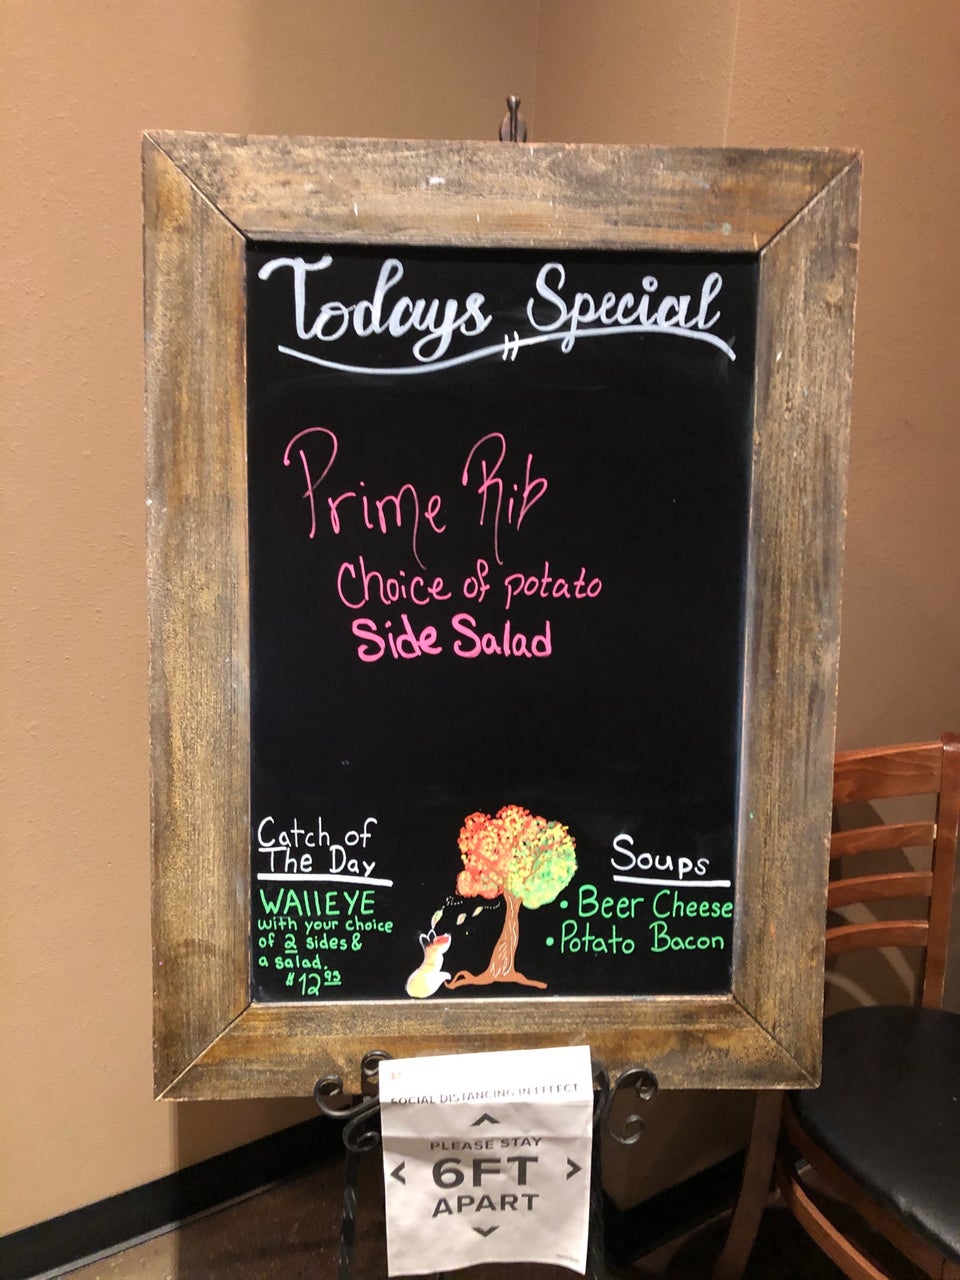 Todays Special
Prime Rib
Choice of potato
Side Salad
Catch of
The Day
WAllEYE
with your choice
of 2 sides &
a salad.
$12.95
Soups
• Beer Cheese
• Potato Bacon
SOCIAL DISTANCING IN EFFECT
PLEASE STAY
6FT
APART